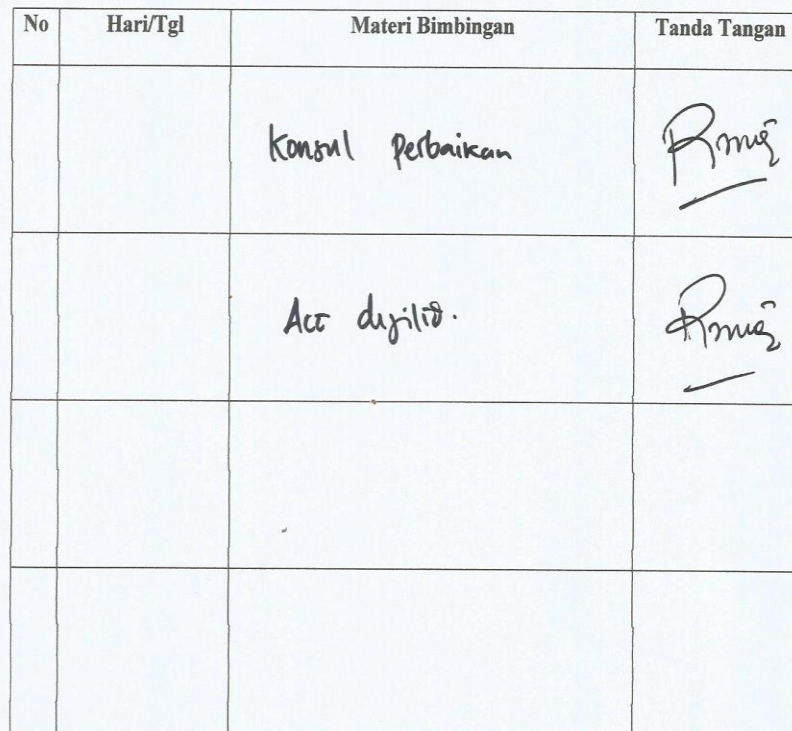 No Hari/Tgl Materi Bimbingan Tanda Tangan
Konsul Perbaikan
Acc dijilid.